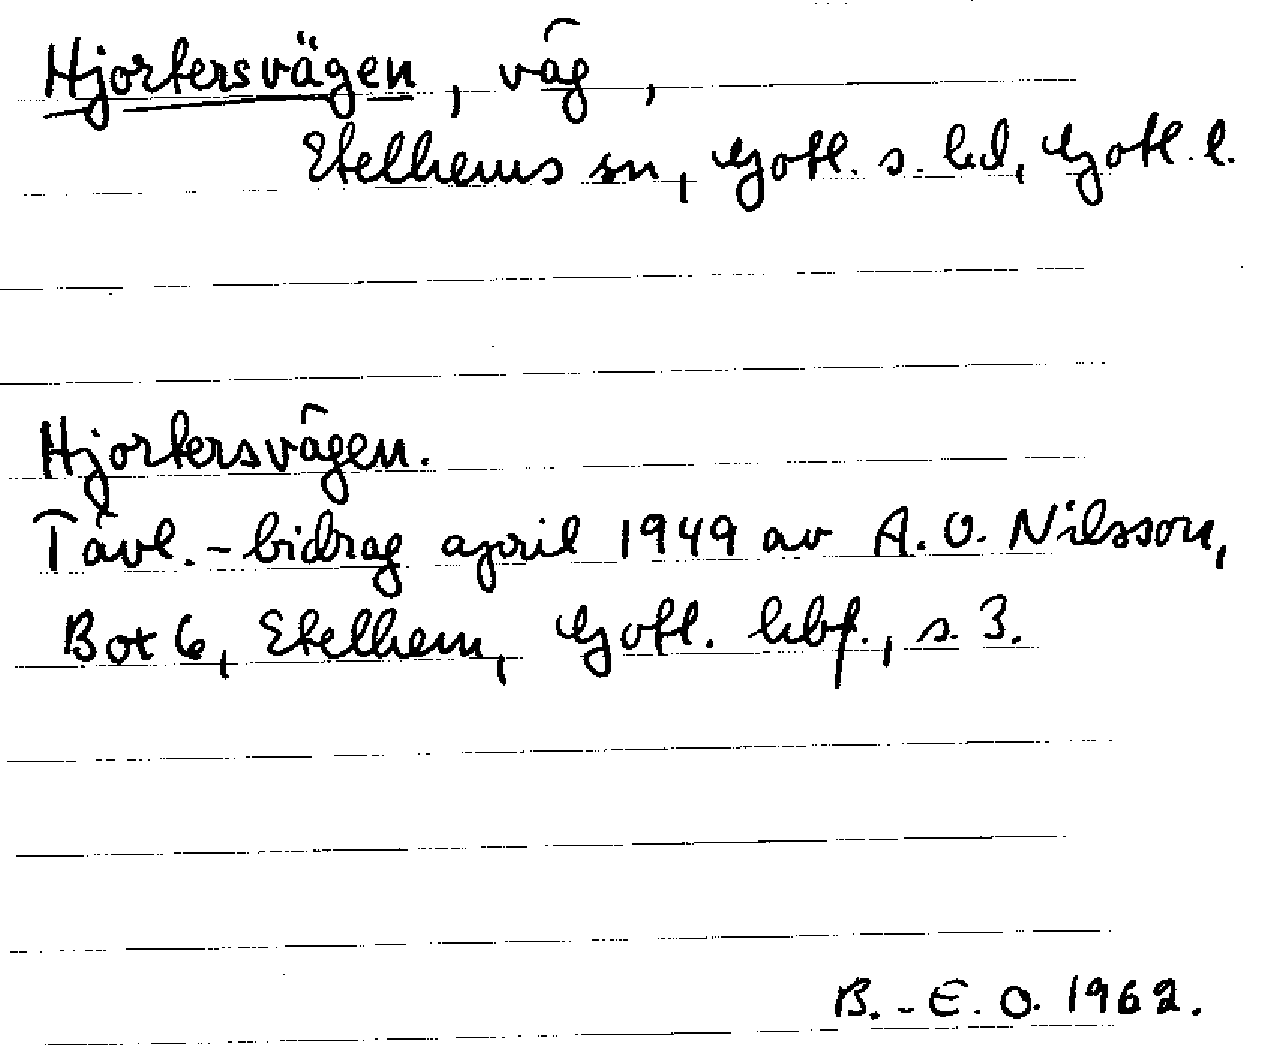 Hjortersvägen, väg,
Etelhems sn, Gotl. s. hd, Gotl. l.
Hjortersvägen.
Tävl.-bidrag april 1949 av A. O. Nilsson,
Box 6, Etelhem, Gotl. hbf., s. 3.
B.-E. O. 1962.